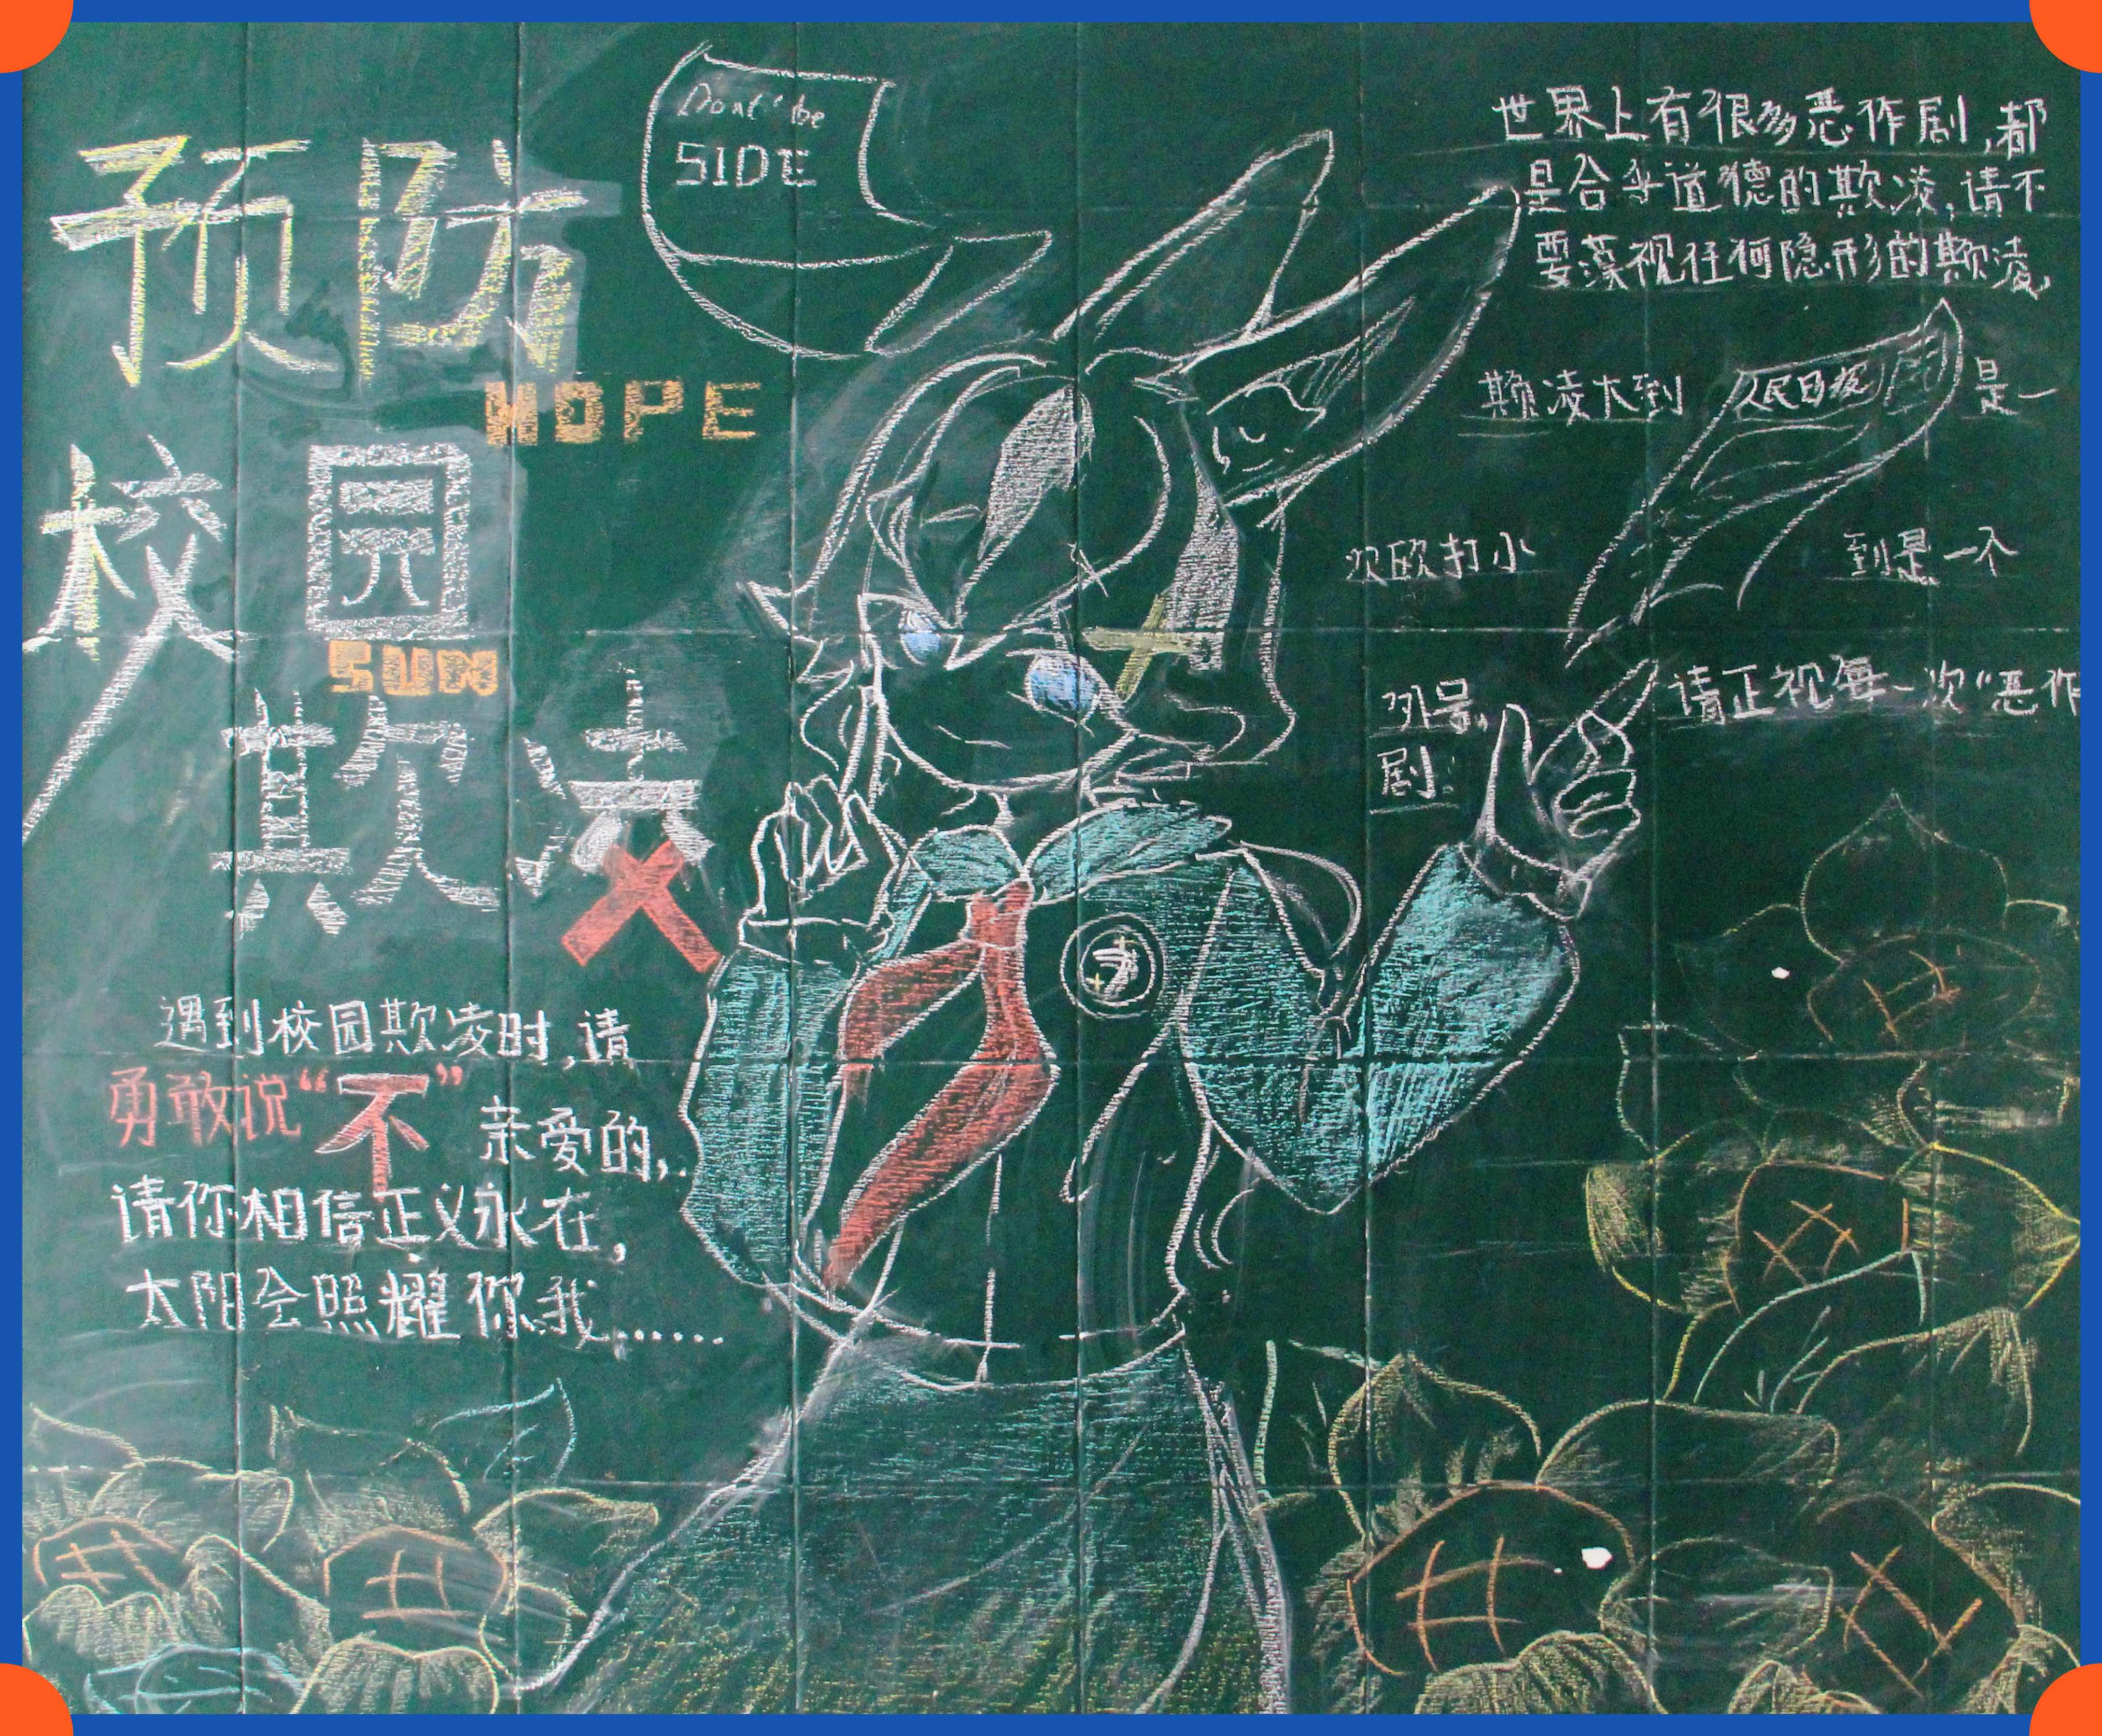 预防
HOPE
校园
SUN
欺凌
遇到校园欺凌时,请
勇敢说“不”亲爱的,
请你相信正义永在,
太阳会照耀你我......
Don't be
SIDE
世界上有很多恶作剧,都
是合乎道德的欺凌,请不
要藐视任何隐形的欺凌,
欺凌大到 人民日报 是一
次欧打小 到是一个
外号, 请正视每一次“恶作
剧